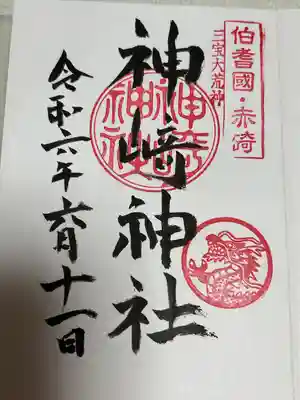 伯耆國・赤碕
三宝大荒神
神﨑神社
神崎神社
令和六年六月十一日